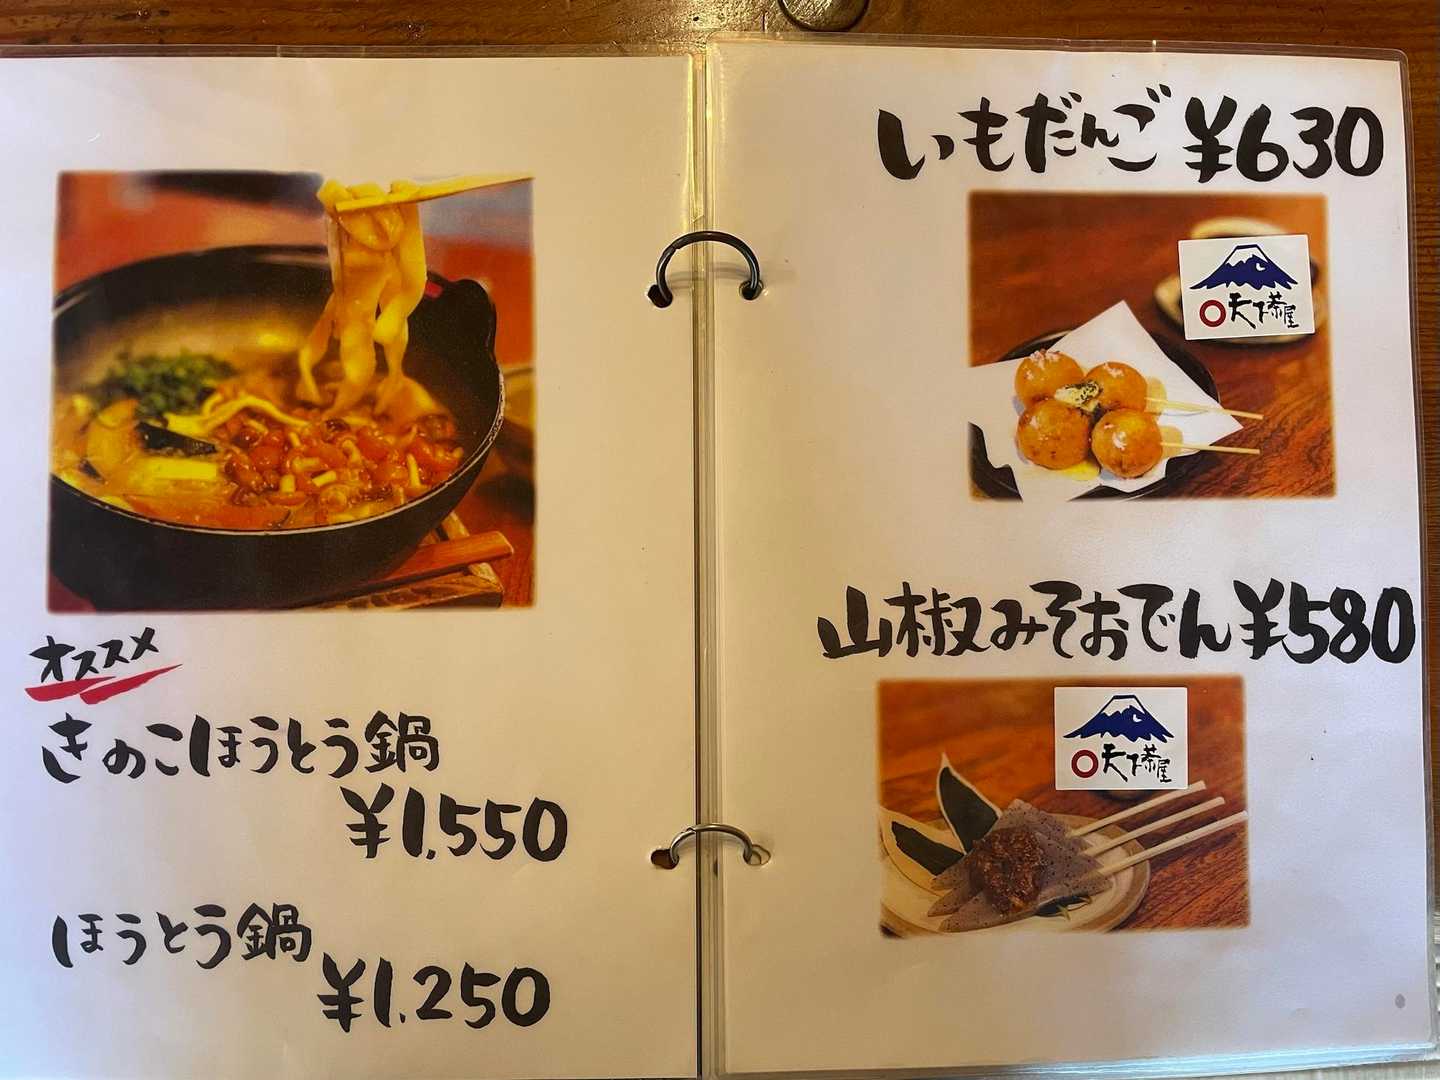 オススメ
きのこほうとう鍋
¥1,550
ほうとう鍋
¥1,250
いもだんご ¥630
天下茶屋
山椒みそおでん ¥580
天下茶屋